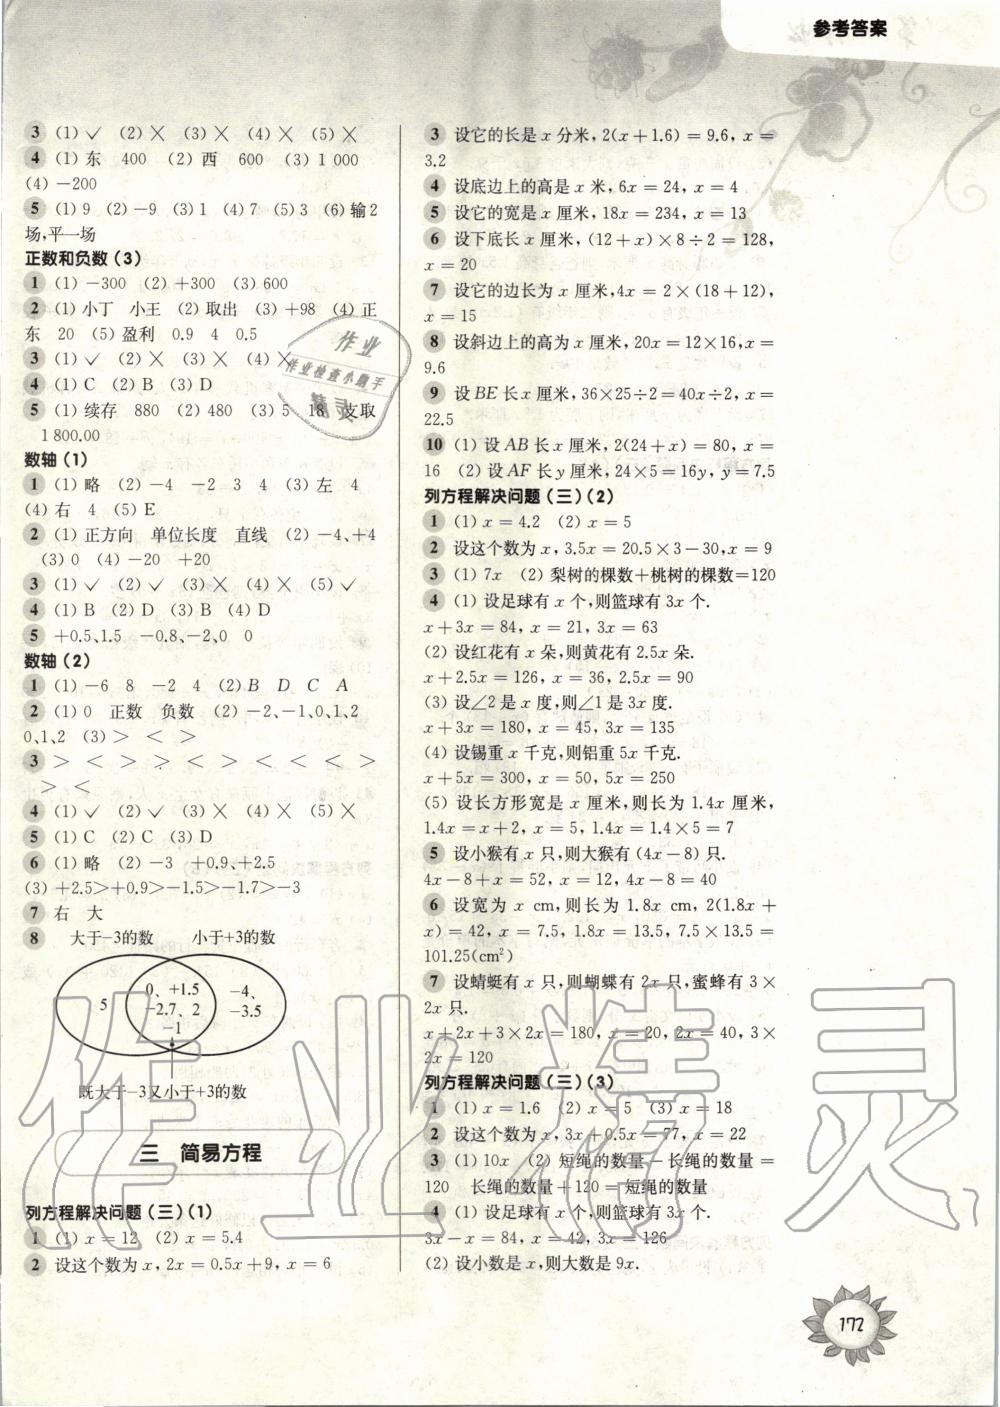 参考答案
3 (1)✓ (2)× (3)× (4)× (5)×
4 (1)东 400 (2)西 600 (3)1 000
(4)−200
5 (1)9 (2)−9 (3)1 (4)7 (5)3 (6)输2
场,平一场
正数和负数(3)
1 (1)−300 (2)+300 (3)600
2 (1)小丁 小王 (2)取出 (3)+98 (4)正
东 20 (5)盈利 0.9 4 0.5
3 (1)✓ (2)× (3)× (4)×
4 (1)C (2)B (3)D
5 (1)续存 880 (2)480 (3)5 18 支取
1800.00
数轴(1)
1 (1)略 (2)−4 −2 3 4 (3)左 4
(4)右 4 (5)E
2 (1)正方向 单位长度 直线 (2)−4、+4
(3)0 (4)−20 +20
3 (1)✓ (2)✓ (3)× (4)× (5)✓
4 (1)B (2)D (3)B (4)D
5 +0.5、1.5 −0.8、−2、0 0
数轴(2)
1 (1)−6 8 −2 4 (2)B D C A
2 (1)0 正数 负数 (2)−2、−1、0、1、2
0、1、2 (3)> < >
3 > < > > < > < < < >
> <
4 (1)✓ (2)✓ (3)× (4)× (5)×
5 (1)C (2)C (3)D
6 (1)略 (2)−3 +0.9、+2.5
(3)+2.5>+0.9>−1.5>−1.7>−3
7 右 大
8 大于−3的数 小于+3的数
5
0、+1.5
−2.7、2
−1
−4、
−3.5
既大于−3又小于+3的数
三 简易方程
列方程解决问题(三)(1)
1 (1)x=12 (2)x=5.4
2 设这个数为x,2x=0.5x+9,x=6
3 设它的长是x分米,2(x+1.6)=9.6,x=
3.2
4 设底边上的高是x米,6x=24,x=4
5 设它的宽是x厘米,18x=234,x=13
6 设下底长x厘米,(12+x)×8÷2=128,
x=20
7 设它的边长为x厘米,4x=2×(18+12),
x=15
8 设斜边上的高为x厘米,20x=12×16,x=
9.6
9 设BE长x厘米,36×25÷2=40x÷2,x=
22.5
10 (1)设AB长x厘米,2(24+x)=80,x=
16 (2)设AF长y厘米,24×5=16y,y=7.5
列方程解决问题(三)(2)
1 (1)x=4.2 (2)x=5
2 设这个数为x,3.5x=20.5×3−30,x=9
3 (1)7x (2)梨树的棵数+桃树的棵数=120
4 (1)设足球有x个,则篮球有3x个.
x+3x=84,x=21,3x=63
(2)设红花有x朵,则黄花有2.5x朵.
x+2.5x=126,x=36,2.5x=90
(3)设∠2是x度,则∠1是3x度.
x+3x=180,x=45,3x=135
(4)设锡重x千克,则铝重5x千克.
x+5x=300,x=50,5x=250
(5)设长方形宽是x厘米,则长为1.4x厘米,
1.4x=x+2,x=5,1.4x=1.4×5=7
5 设小猴有x只,则大猴有(4x−8)只.
4x−8+x=52,x=12,4x−8=40
6 设宽为x cm,则长为1.8x cm,2(1.8x+
x)=42,x=7.5,1.8x=13.5,7.5×13.5=
101.25(cm²)
7 设蜻蜓有x只,则蝴蝶有2x只,蜜蜂有3×
2x只.
x+2x+3×2x=180,x=20,2x=40,3×
2x=120
列方程解决问题(三)(3)
1 (1)x=1.6 (2)x=5 (3)x=18
2 设这个数为x,3x+0.5x=77,x=22
3 (1)10x (2)短绳的数量−长绳的数量=
120 长绳的数量+120=短绳的数量
4 (1)设足球有x个,则篮球有3x个.
3x−x=84,x=42,3x=126
(2)设小数是x,则大数是9x.
172
作业
作业检查小助手
精灵
作业精灵